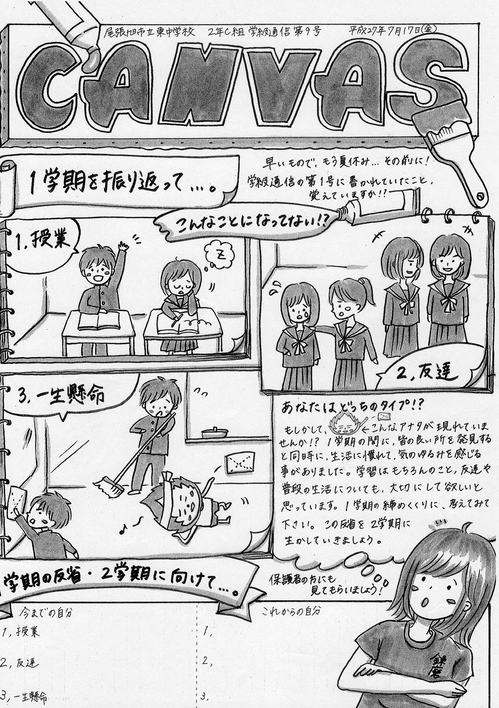 尾張旭市立東中学校 2年C組 学級通信 第9号 平成27年7月17日(金)
CANVAS
1学期を振り返って…。
早いもので、もう夏休み… その前に!
学級通信の第1号に書かれていたこと、
覚えていますか!?
こんなことになってない!?
1. 授業
Z
2. 友達
3. 一生懸命
あなたはどっちのタイプ!?
もしかして、←こんなアナタが現れていま
せんか!? 1学期の間に、皆の良い所を発見する
と同時に、生活に慣れて、気のゆるみを感じる
事がありました。学習はもちろんのこと、友達や
普段の生活についても、大切にして欲しいと
思っています。1学期の締めくくりに、考えてみて
下さい。この反省を2学期に
生かしていきましょう。
学期の反省・2学期に向けて…。
保護者の方にも
見てもらいましょう!
今までの自分 これからの自分
1. 授業 1.
2. 友達 2.
3. 一生懸命 3.